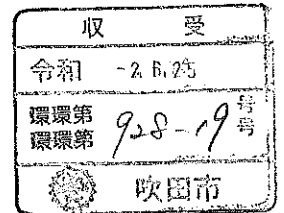 収 受
令和 -2.6.25
環環第 号
環環第 928-19 号
吹田市